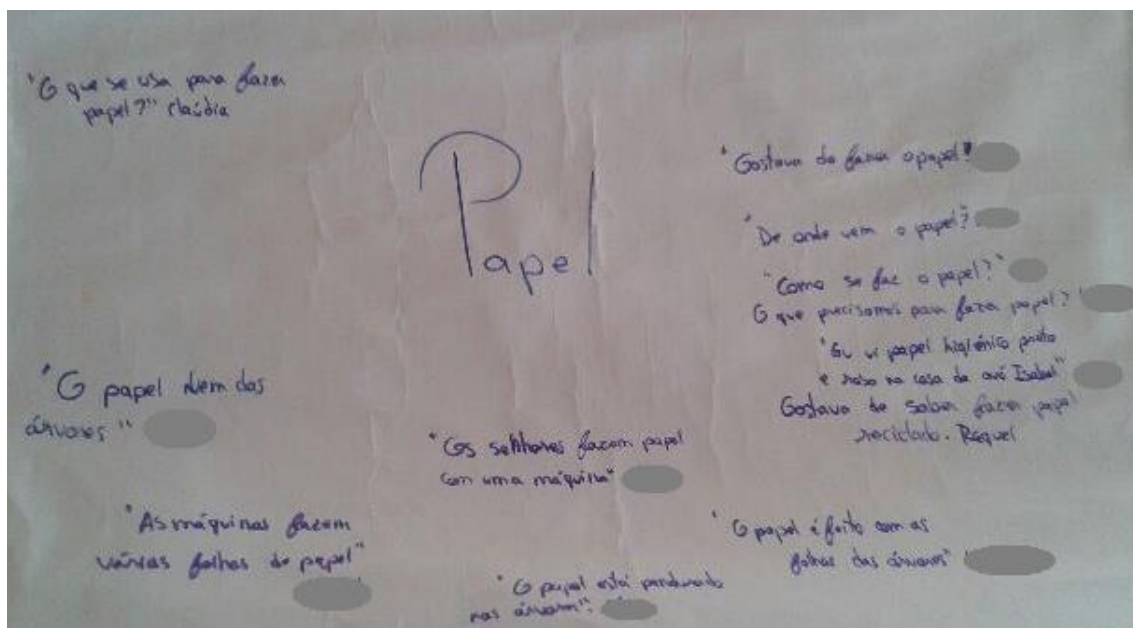 "O que se usa para fazer
papel?" Claúdia
Papel
"Gostava de fazer o papel"
"De onde vem o papel?"
"Como se faz o papel?"
O que precisamos para fazer papel?
"Eu vi papel higiénico preto
e roxo na casa da avó Isabel"
Gostava de saber fazer papel
reciclado. Raquel
"O papel vem das
árvores"
"Os senhores fazem papel
com uma máquina"
"As máquinas fazem
várias folhas de papel"
"O papel é feito com as
folhas das árvores"
"O papel está pendurado
nas árvores".